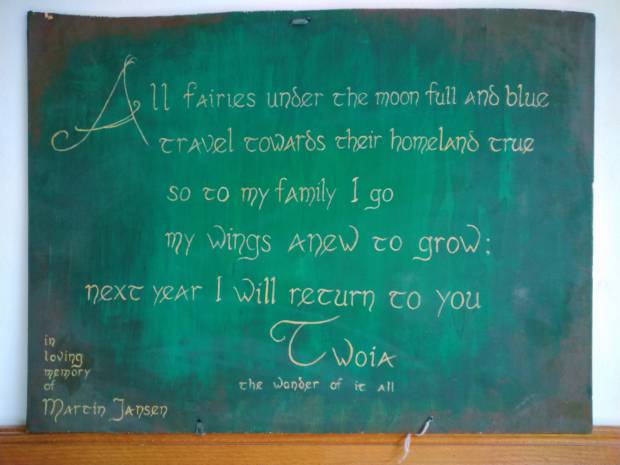 All fairies under the moon full and blue
travel towards their homeland true
so to my family I go
my wings anew to grow;
next year I will return to you
Twoia
the wonder of it all
in
loving
memory
of
Martin Jansen